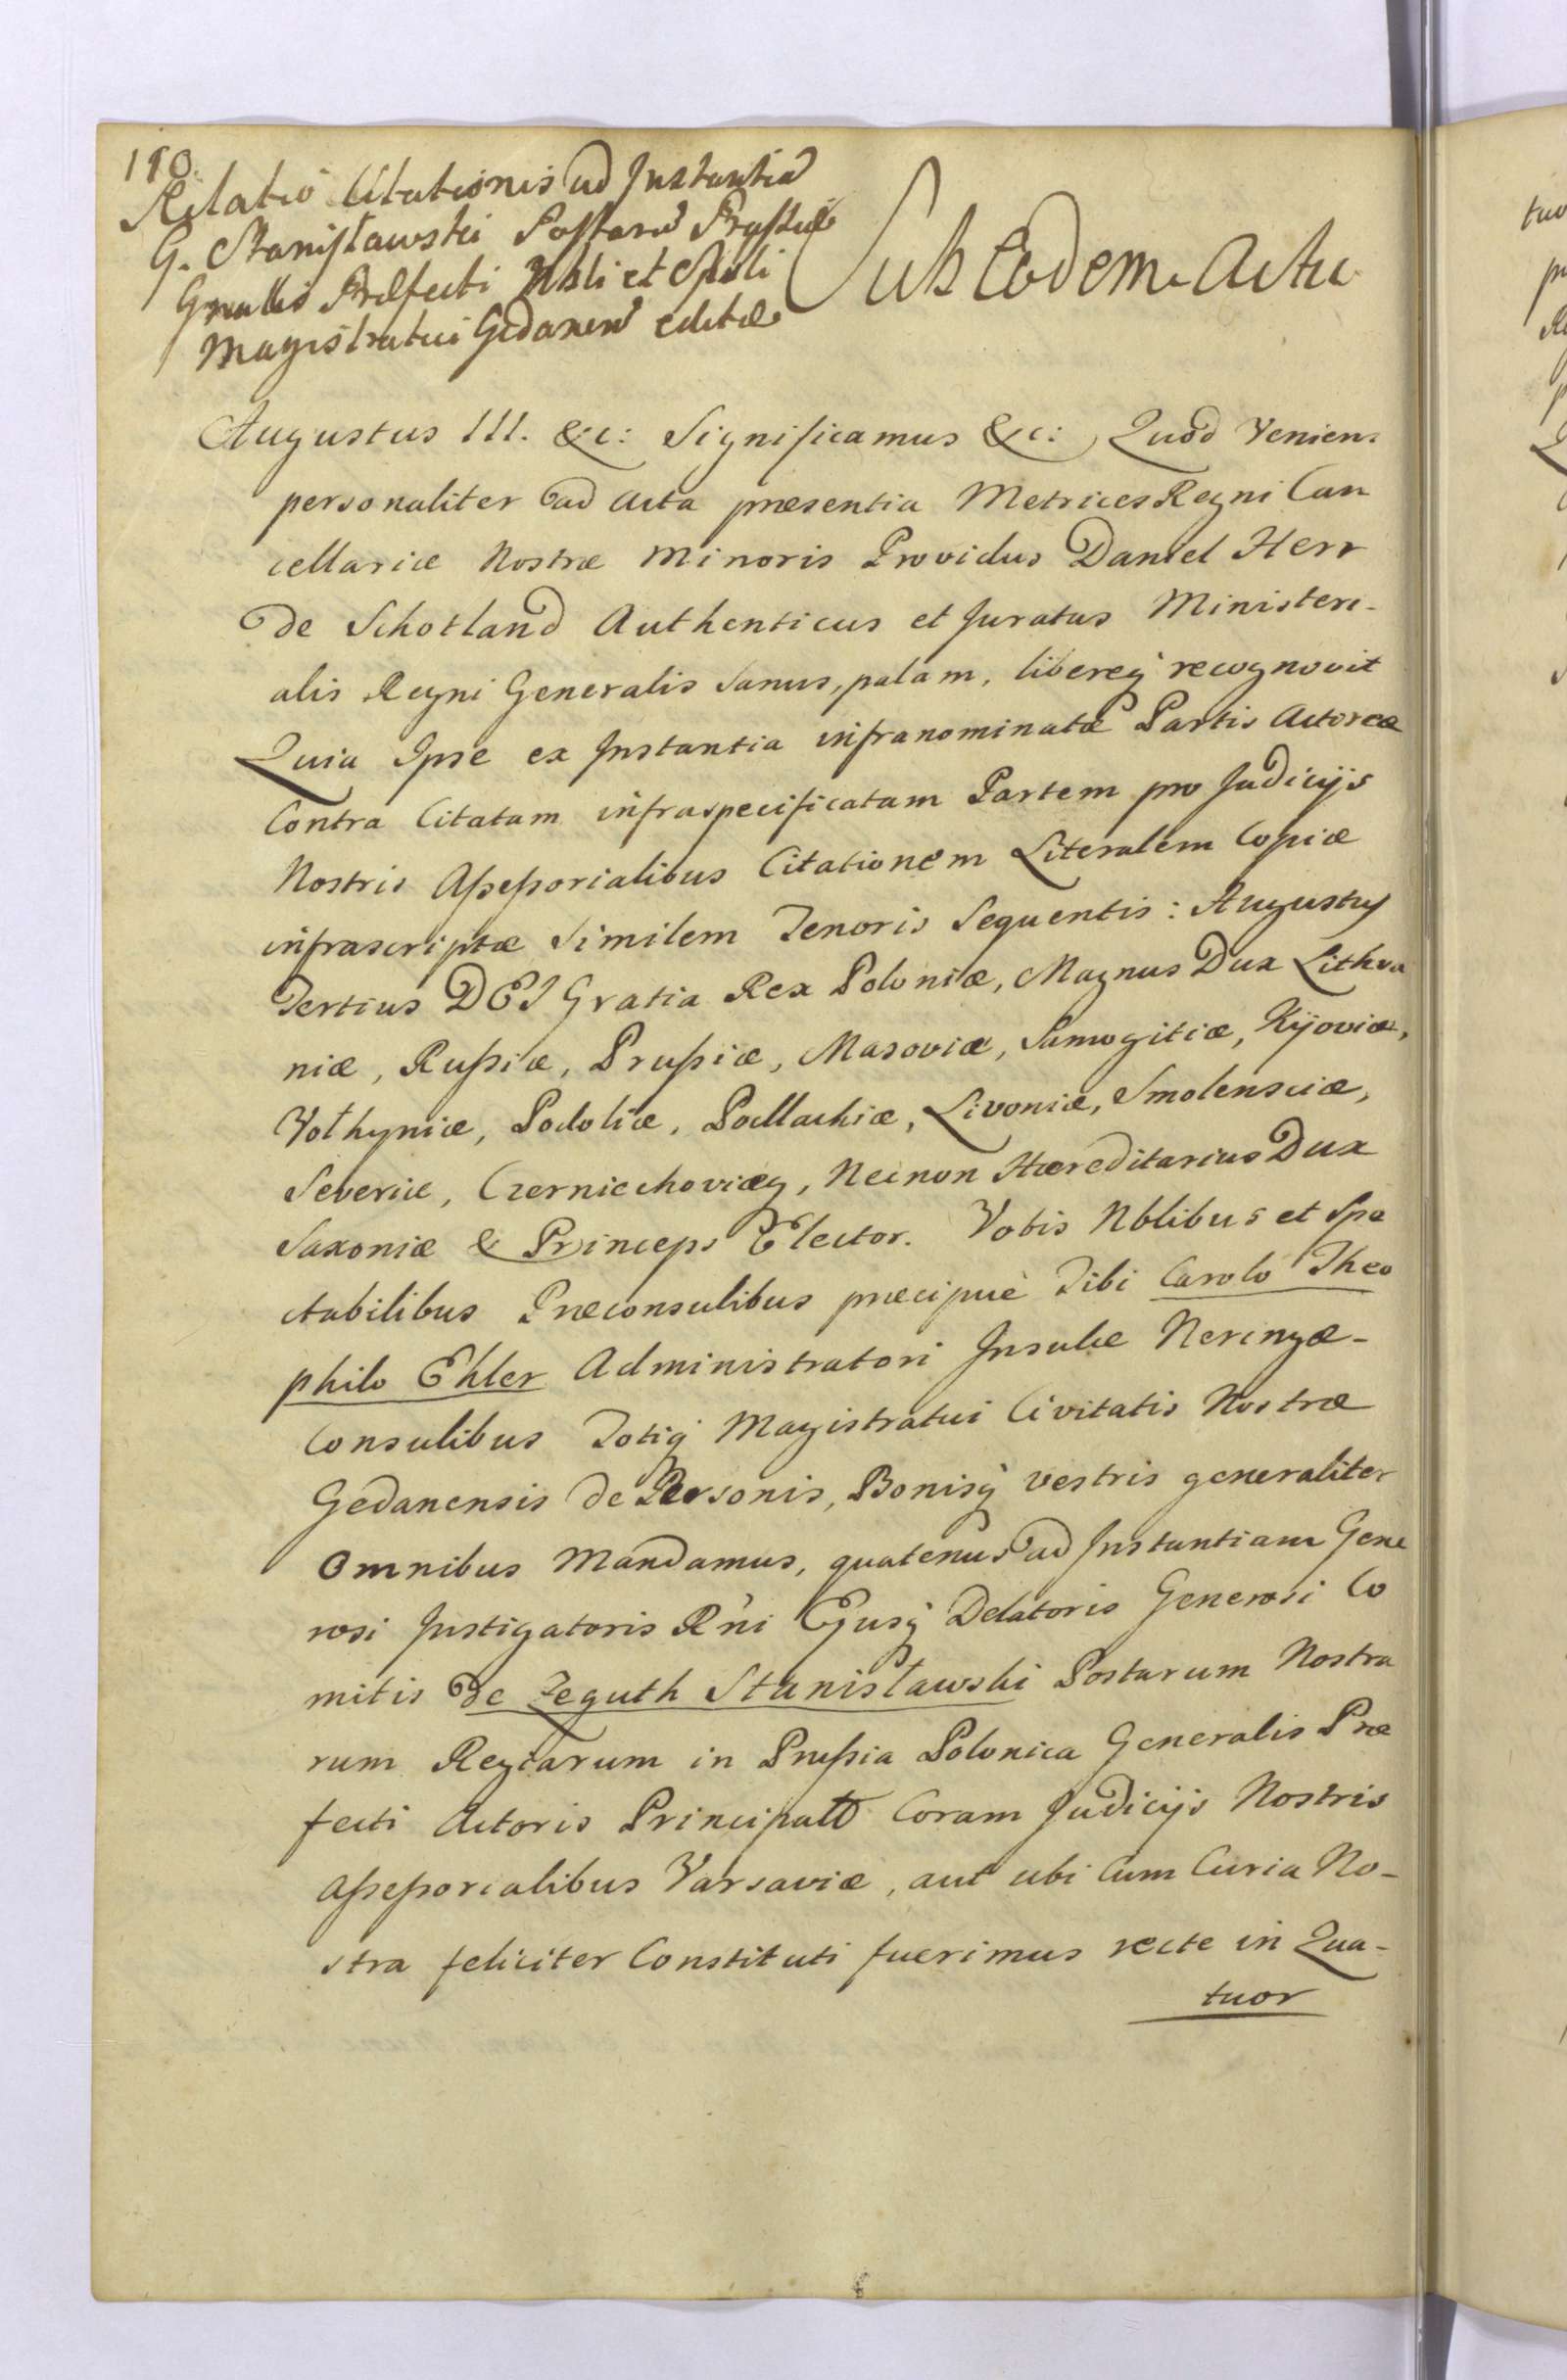 190.
Relatio Citationis ad Instantiã
G. Stanisławski Postarũ Prussiæ
Gnralis Præfecti Nbli et Spbli
Magistratui Gedanen editæ
Sub Eodem Actu
Augustus III. &c: Significamus &c: Quod Veniens
personaliter ad Acta præsentia Metrices Regni Can
cellariæ Nostræ Minoris Providus Daniel Herr
de Schotland Authenticus et Juratus Ministeri-
alis Regni Generalis Sanus, palam, libereq recognovit
Quia Ipse ex Instantia infranominatæ Partis Actoreæ
Contra Citatam infraspecificatam Partem pro Judicijs
Nostris Assessorialibus Citationem Literalem Copiæ
infrascriptæ Similem Tenoris Sequentis: Augustus
Tertius DEI Gratia Rex Poloniæ, Magnus Dux Lithva
niæ, Russiæ, Prussiæ, Masoviæ, Samogitiæ, Kijoviæ,
Vołhyniæ, Podoliæ, Podlachiæ, Livoniæ, Smolensciæ,
Severiæ, Czerniechoviæq, Necnon Hæreditarius Dux
Saxoniæ & Princeps Elector. Vobis Nblibus et Spe
ctabilibus Præconsulibus præcipuè Tibi Carolo Theo
philo Ehler Administratori Insulæ Neringæ-
Consulibus Totiq Magistratui Civitatis Nostræ
Gedanensis de Personis, Bonisq vestris generaliter
Omnibus Mandamus, quatenus ad Instantiam Gene
rosi Instigatoris Rni Ejusq Delatoris Generosi Co
mitis de Zeguth Stanisławski Postarum Nostra
rum Regiarum in Prussia Polonica Generalis Præ
fecti Actoris Principali Coram Judicijs Nostris
Assessorialibus Varsaviæ, aut ubi Cum Curia No-
stra feliciter Constituti fuerimus recte in Qua-
tuor